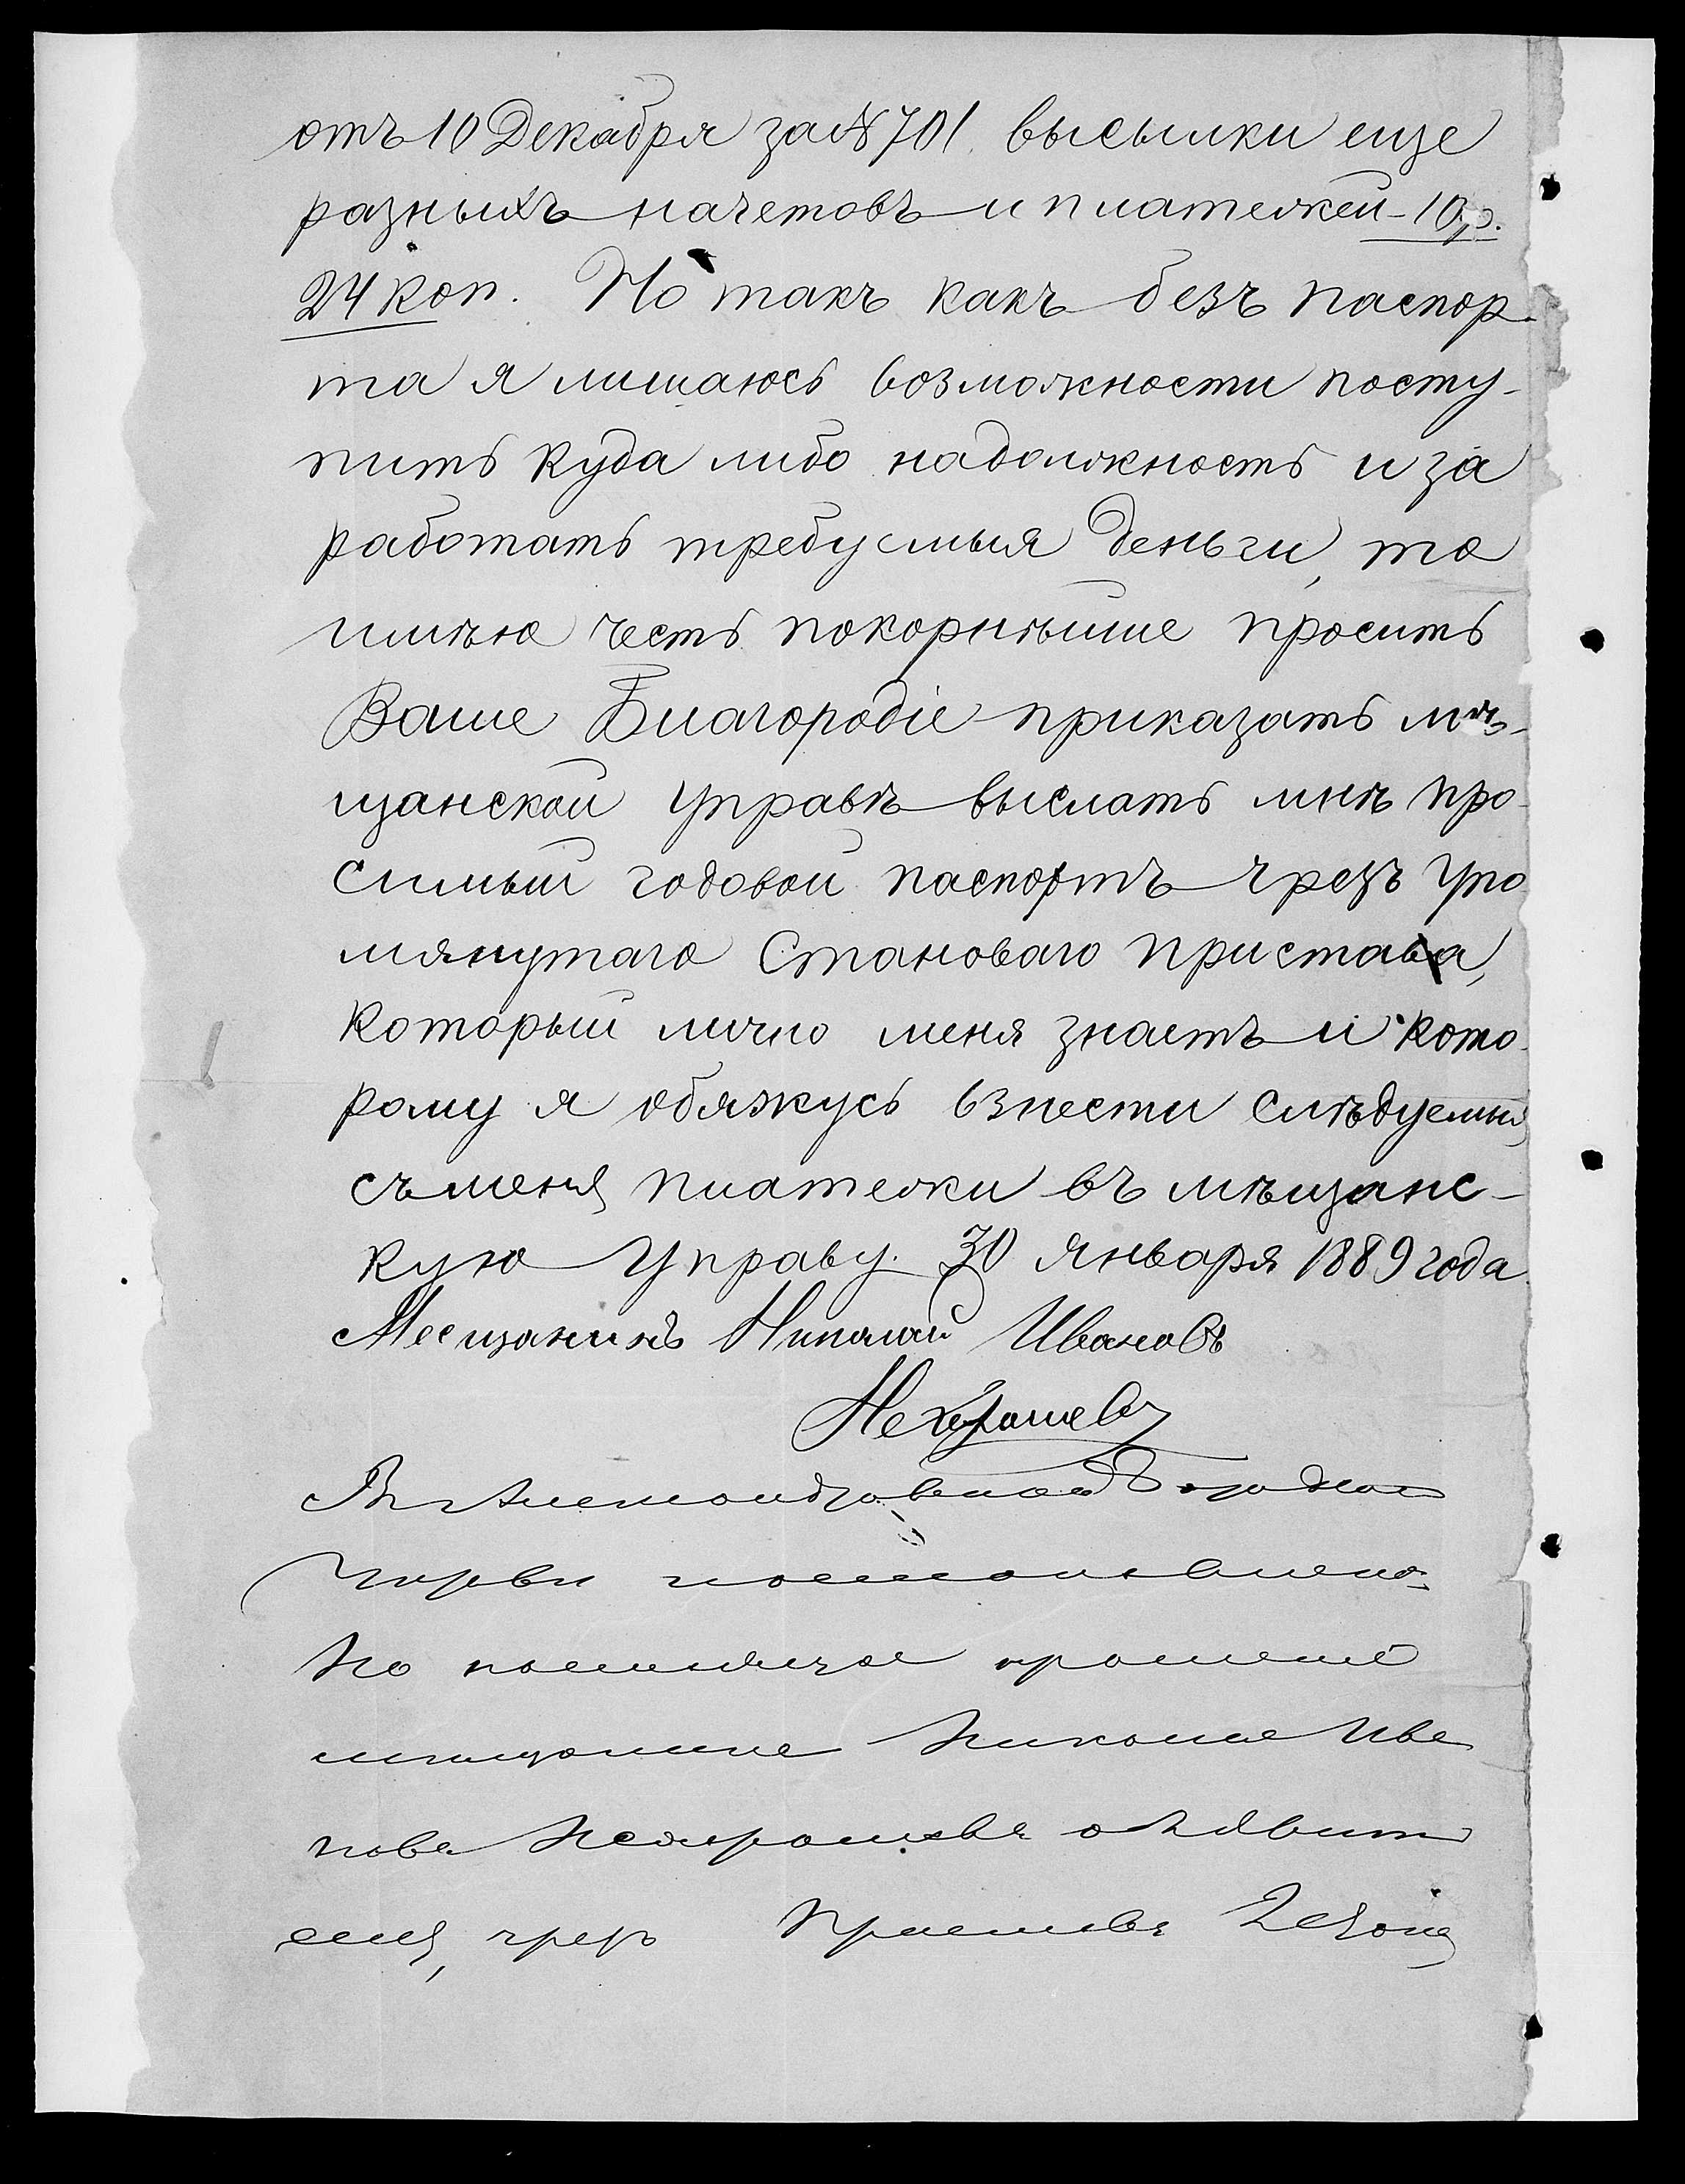 отъ 10 Декабря за № 701 высылки еще
разныхъ начетовъ и платежей - 10 р.
24 коп. Но такъ какъ безъ паспор-
та я лишаюсь возможности посту-
пить куда либо на должность и за
работать требуемыя деньги, то
имѣю честь покорнѣйше просить
Ваше Благородіе приказать мѣ-
щанской Управѣ выслать мнѣ про-
симый годовой паспортъ чрезъ упо
мянутаго Становаго пристава,
который лично меня знаетъ и кото-
рому я обяжусь взнести слѣдуемыя
съ меня платежи въ мѣщанс-
кую Управу. 30 Января 1889 года
Месщанинъ Николай Ивановъ
В Александровской
Управы постановлено:
По
мѣщанина Николая Ива
нова объявить
чрезъ Пристава